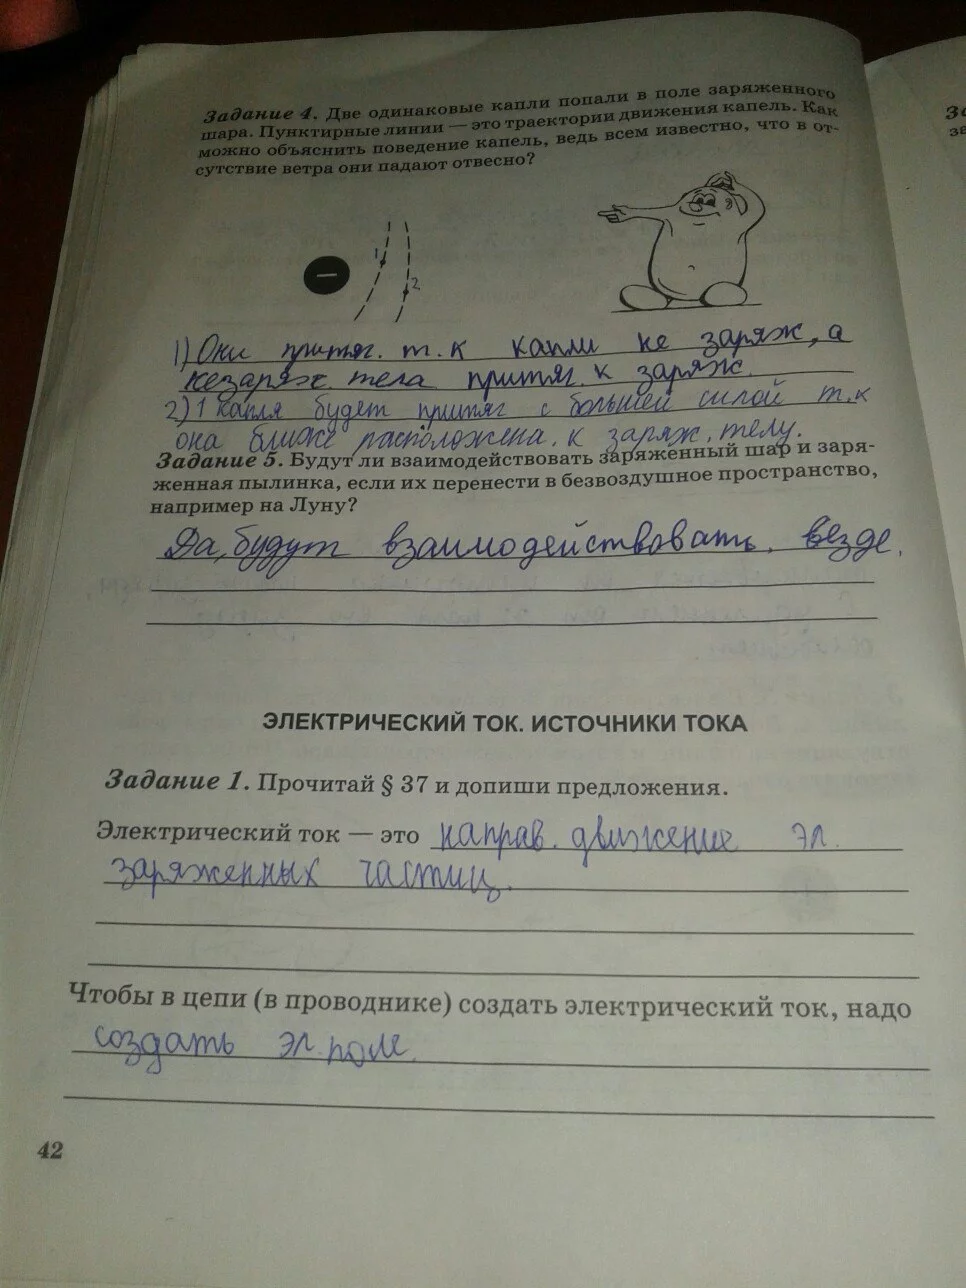 Задание 4. Две одинаковые капли попали в поле заряженного
шара. Пунктирные линии — это траектории движения капель. Как
можно объяснить поведение капель, ведь всем известно, что в от-
сутствие ветра они падают отвесно?
−
1
2
1) Они притяг. т.к капли не заряж, а
незаряж. тела притяг. к заряж.
2) 1 капля будет притяг с большей силой т.к
она ближе расположена к заряж. телу.
Задание 5. Будут ли взаимодействовать заряженный шар и заря-
женная пылинка, если их перенести в безвоздушное пространство,
например на Луну?
Да, будут взаимодействовать везде.
ЭЛЕКТРИЧЕСКИЙ ТОК. ИСТОЧНИКИ ТОКА
Задание 1. Прочитай § 37 и допиши предложения.
Электрический ток — это направ. движение эл.
заряженных частиц.
Чтобы в цепи (в проводнике) создать электрический ток, надо
создать эл. поле.
42